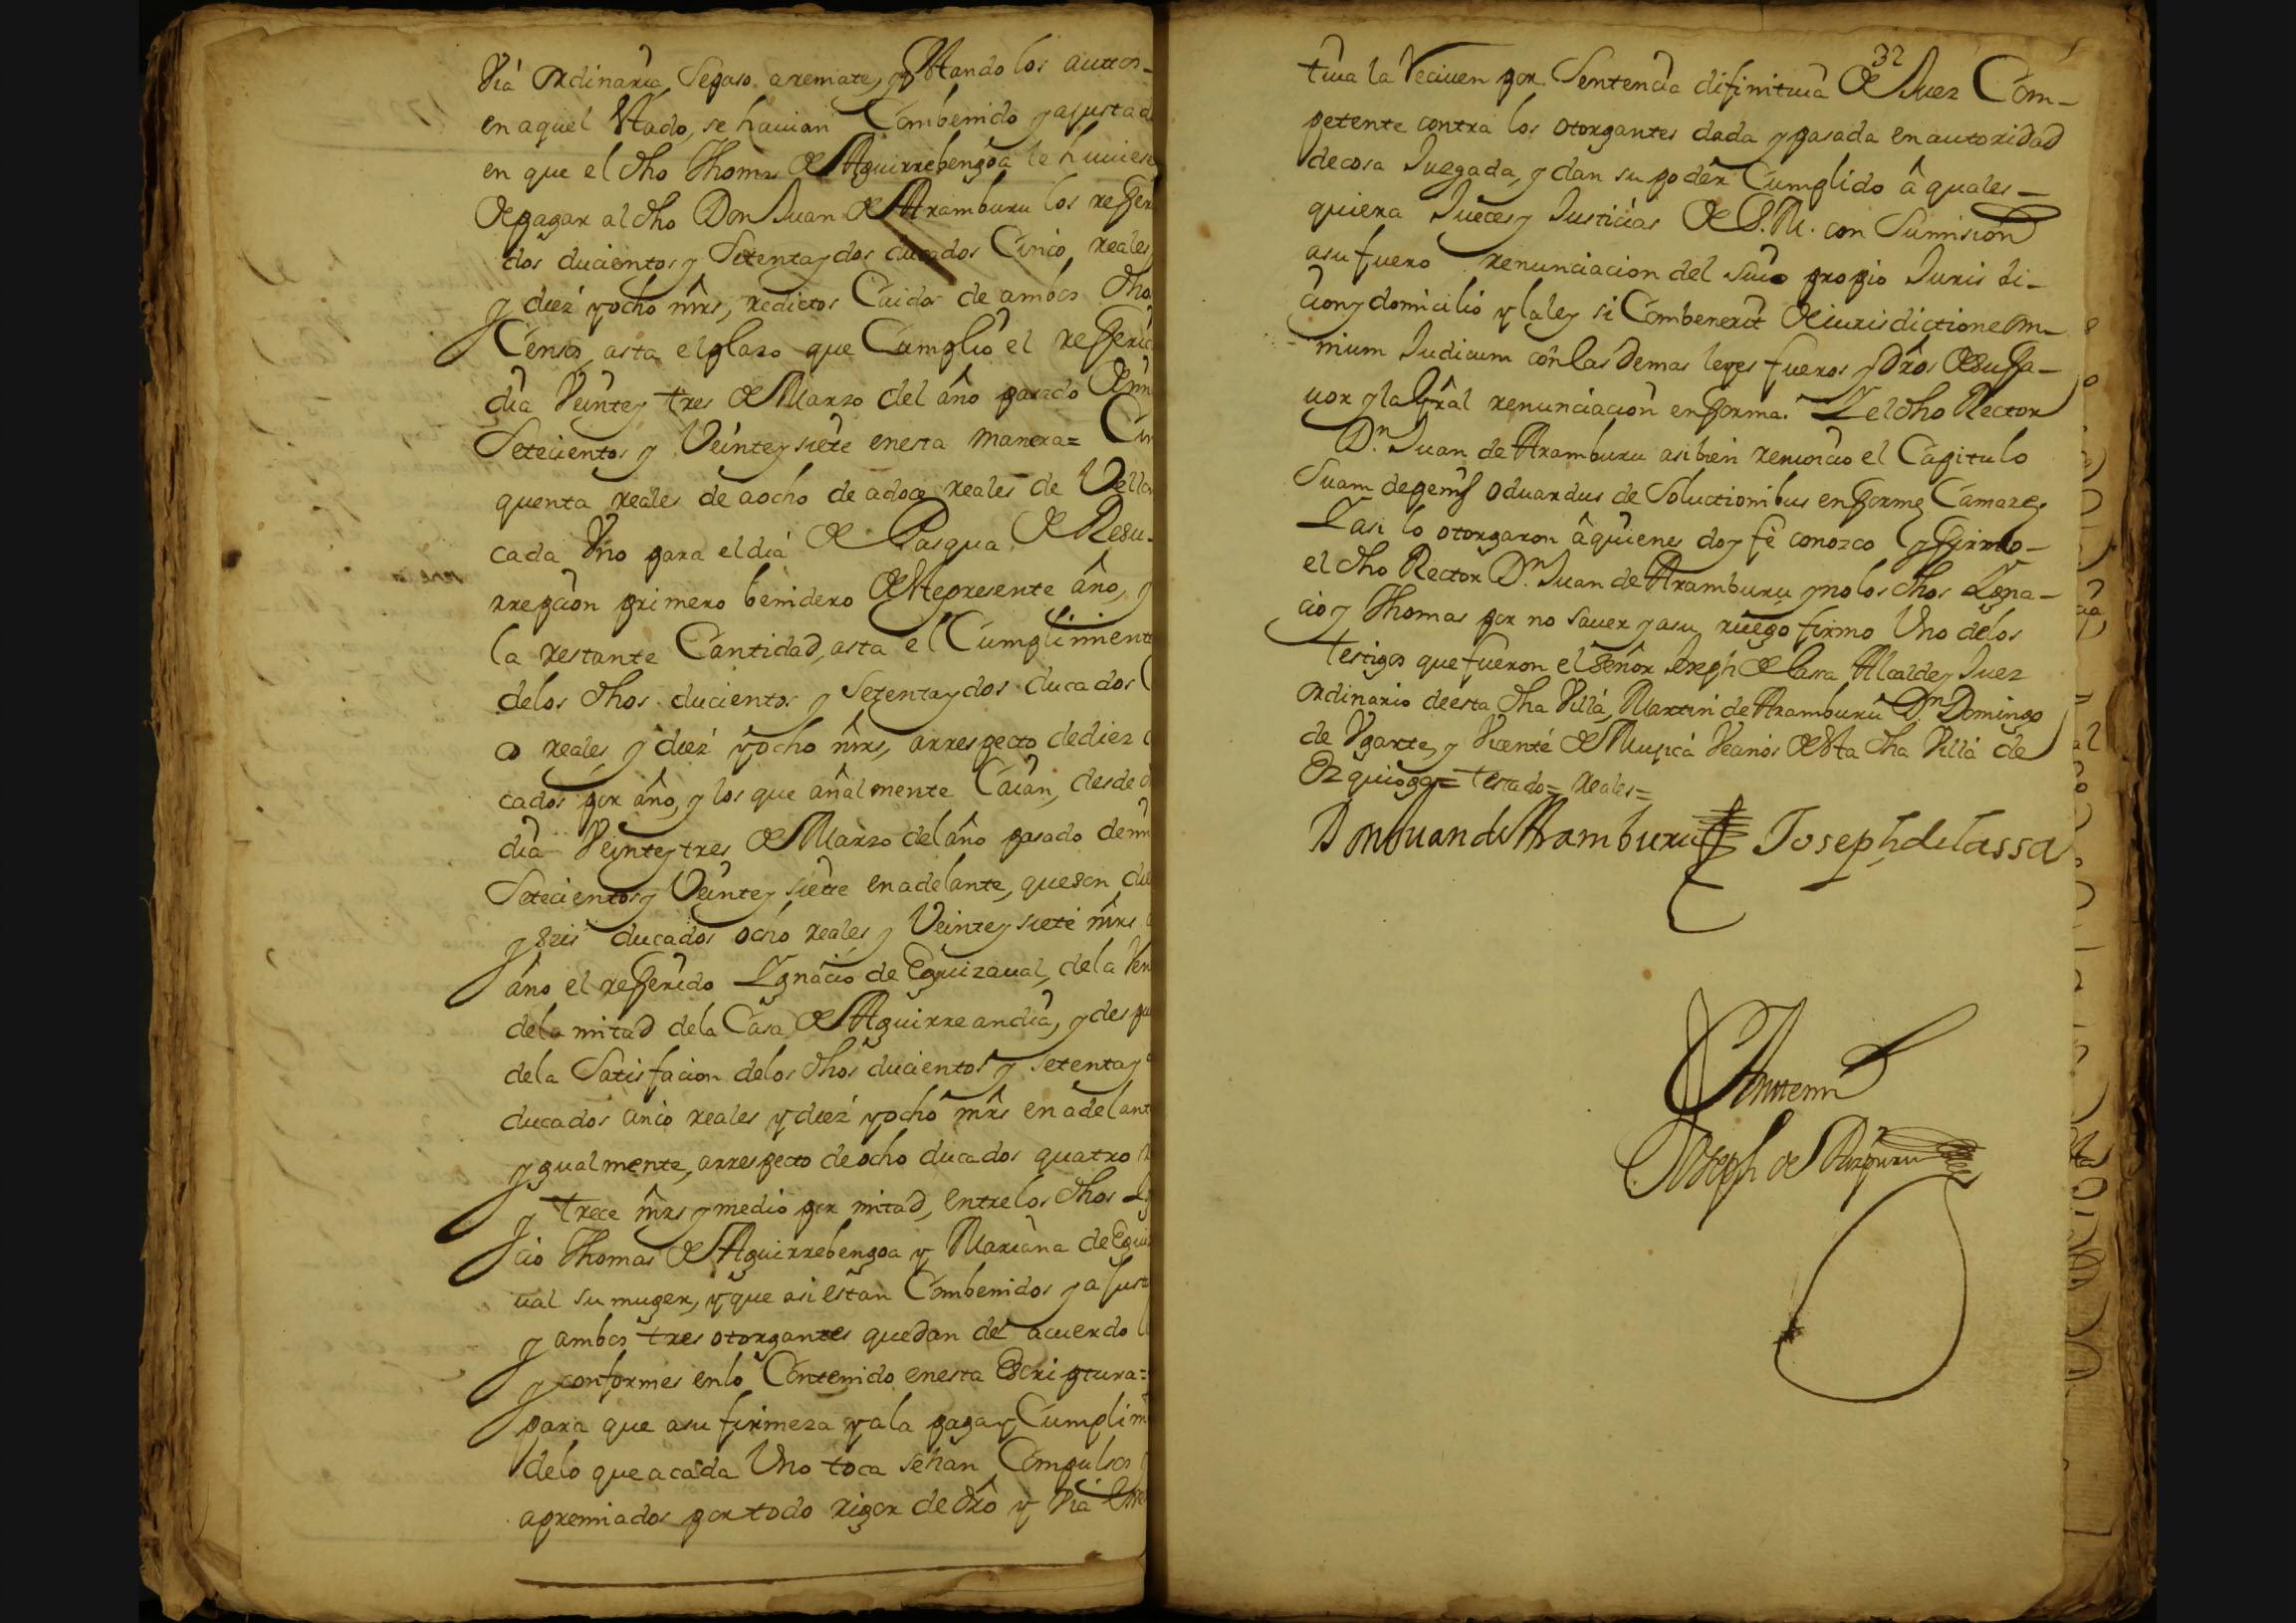 Via ordinaria, Sepaso aremate, y estando los autos
en aquel estado, se havian Combenido y ajustad
en que el dho Thomas de Aguirrebengoa le huviese
de pagar al dho Don Juan de Aramburu los refferi
dos ducientos y Setenta y dos ducados Cinco reales
y diez y ocho mrs, redictos Caidos de ambos dho
Censos, asta el plazo que Cumplio el refferid
dia Veinte y tres de Marzo del año pasado de
Setecientos y Veinte y siete en esta manera =
quenta reales de aocho de adoce reales de Vello
cada Uno para el dia de Pasqua de Resu-
rrepcion primero benidero de este presente año, y
la restante Cantidad, asta el Cumplimient
delos dhos ducientos y Setenta y dos ducados
co reales y diez y ocho mrs, arrespecto de diez
cados por año, y los que añalmente Caian, desde
dia Veinte y tres de Marzo del año pasado de
Setecientos y Veinte y siete en adelante, que son
y seis ducados ocho reales y Veinte y siete mrs
año el refferido Ygnacio de Eguizaval, de la
dela mitad dela Casa de Aguirreandia, y des
dela Satisfacion delos dhos ducientos y setenta y
ducados cinco reales y diez y ocho mrs en adelant
ygualmente, arrespecto de ocho ducados quatro
y trece mrs y medio por mitad, entre los dhos
cio Thomas de Aguirrebengoa y Mariana de Egui
ual su muger, y que asi estan Combenidos y ajust
y ambos tres otorgantes quedan de acuerdo
y conformes en lo Contenido en esta Escriptura =
para que asu firmeza y ala paga y Cumplim
delo que acada Uno toca sehan Compulsos
apremiados por todo rigor de dro y Via
32
tiua la Reciuen por Sentencia difinitiua de Juez Com-
petente contra los otorgantes dada y pasada en autoridad
de cosa Juzgada, y dan su poder Cumplido â quales-
quiera Jueces y Justicias de S. M. con Sumision
asu fuero renunciacion del suio propio Juris di-
cion y domicilio y la ley si Combenerit de iurisdictione om-
nium Judicum con las Demas leyes fueros y Dros de su fa-
uor y la Gral renunciacion en forma. Y el dho Rector
Dn Juan de Aramburu asi bien renuncio el Capitulo
Suam de penis oduardus de Solutionibus en forma Camare
Y asi lo otorgaron â quienes doy fê conozco y firmo
el dho Rector Dn Juan de Aramburu y no los dhos Ygna-
cio y Thomas por no saver y asu ruego firmo Uno delos
testigos que fueron el señor Joseph de Lassa Alcalde y Juez
ordinario de esta dha Villa, Martin de Aramburu Dn Domingo
de Ugarte, y Vicente de Muxica Vecinos de esta dha Villa de
Ezquioga = testado = reales =
Don Juan de Aramburu Joseph de lassa
Antemi
Joseph de